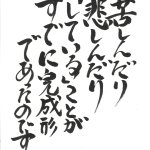 苦しんだり
悲しんだり
していることが
すでに完成形
であたのです